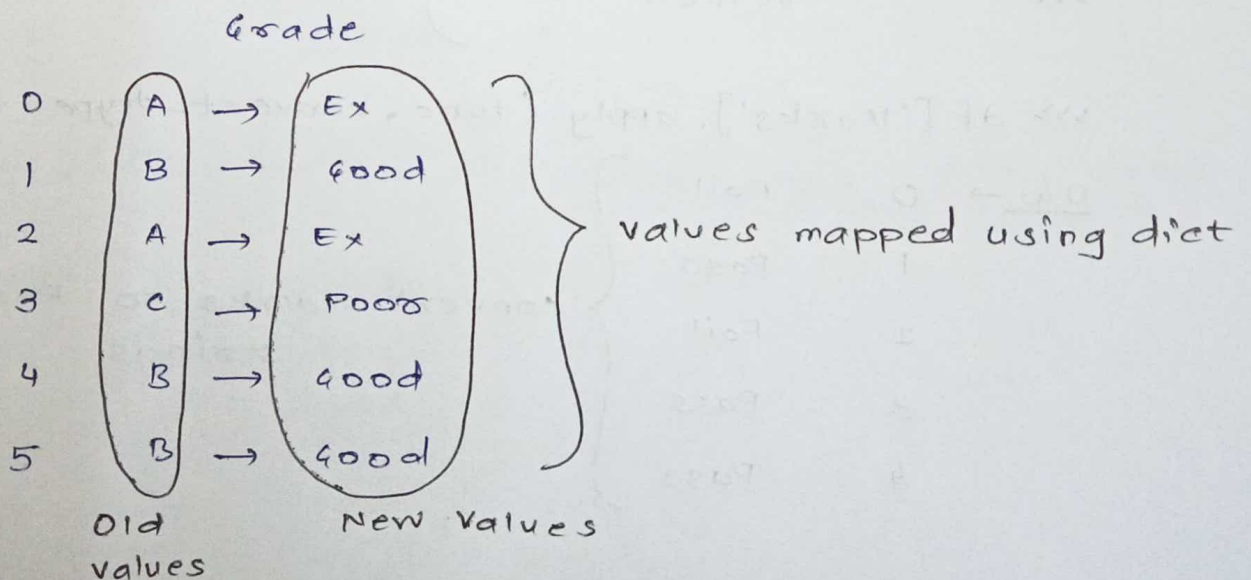 Grade
0 A → Ex
1 B → Good
2 A → Ex
3 C → Poor
4 B → Good
5 B → Good
values mapped using dict
Old values
New values